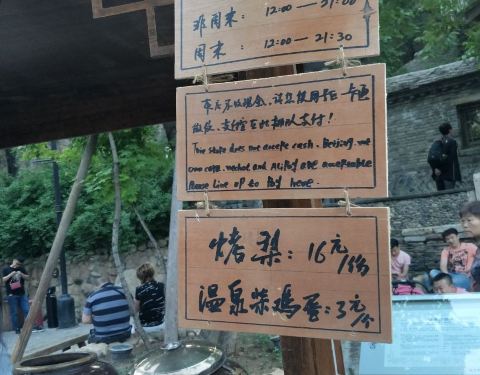 非周末： 12:00—21:00
周末： 12:00—21:30
本店不收现金，请您使用卡 一卡
微信、支付宝在此排队支付！
This store does not accept cash. Beijing
card. wechat and Alipay are acceptable
Please line up to pay here.
烤梨：16元/份
温泉茶鸡蛋：3元/个